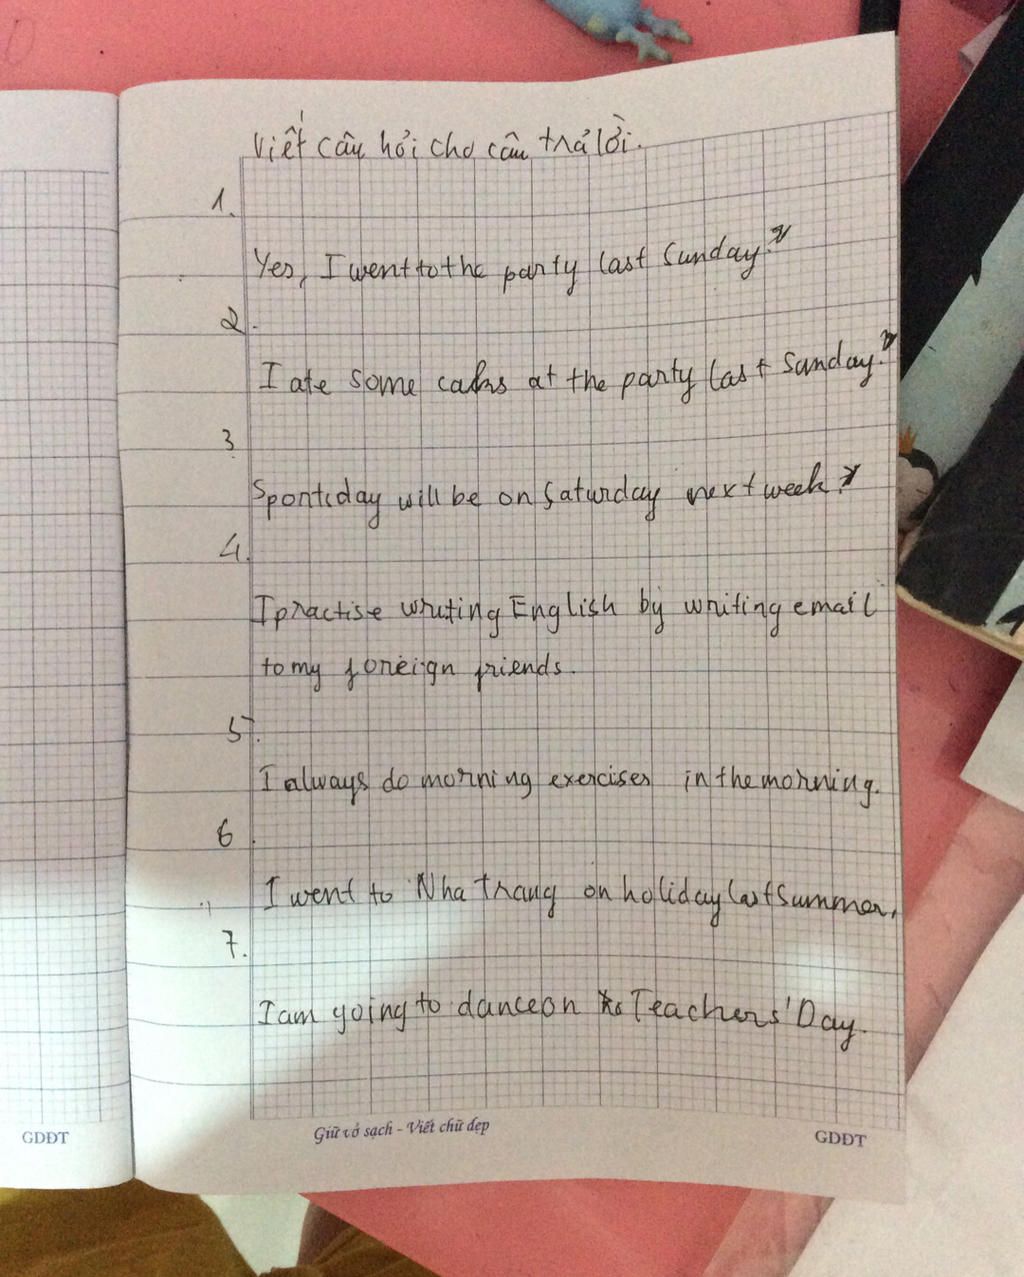 Viết câu hỏi cho câu trả lời.
1.
Yes, I went to the party last Sunday.?
2.
I ate some cakes at the party last Sanday.?
3
Sportsday will be on Saturday next week.?
4.
I practise writing English by writing email
to my foreign friends.
5.
I always do morning exercises in the morning.
6.
I went to Nha trang on holiday last summer.
7.
I am going to dance on Teachers' Day.
Giữ vở sạch - Viết chữ đẹp
GDĐT
GDĐT